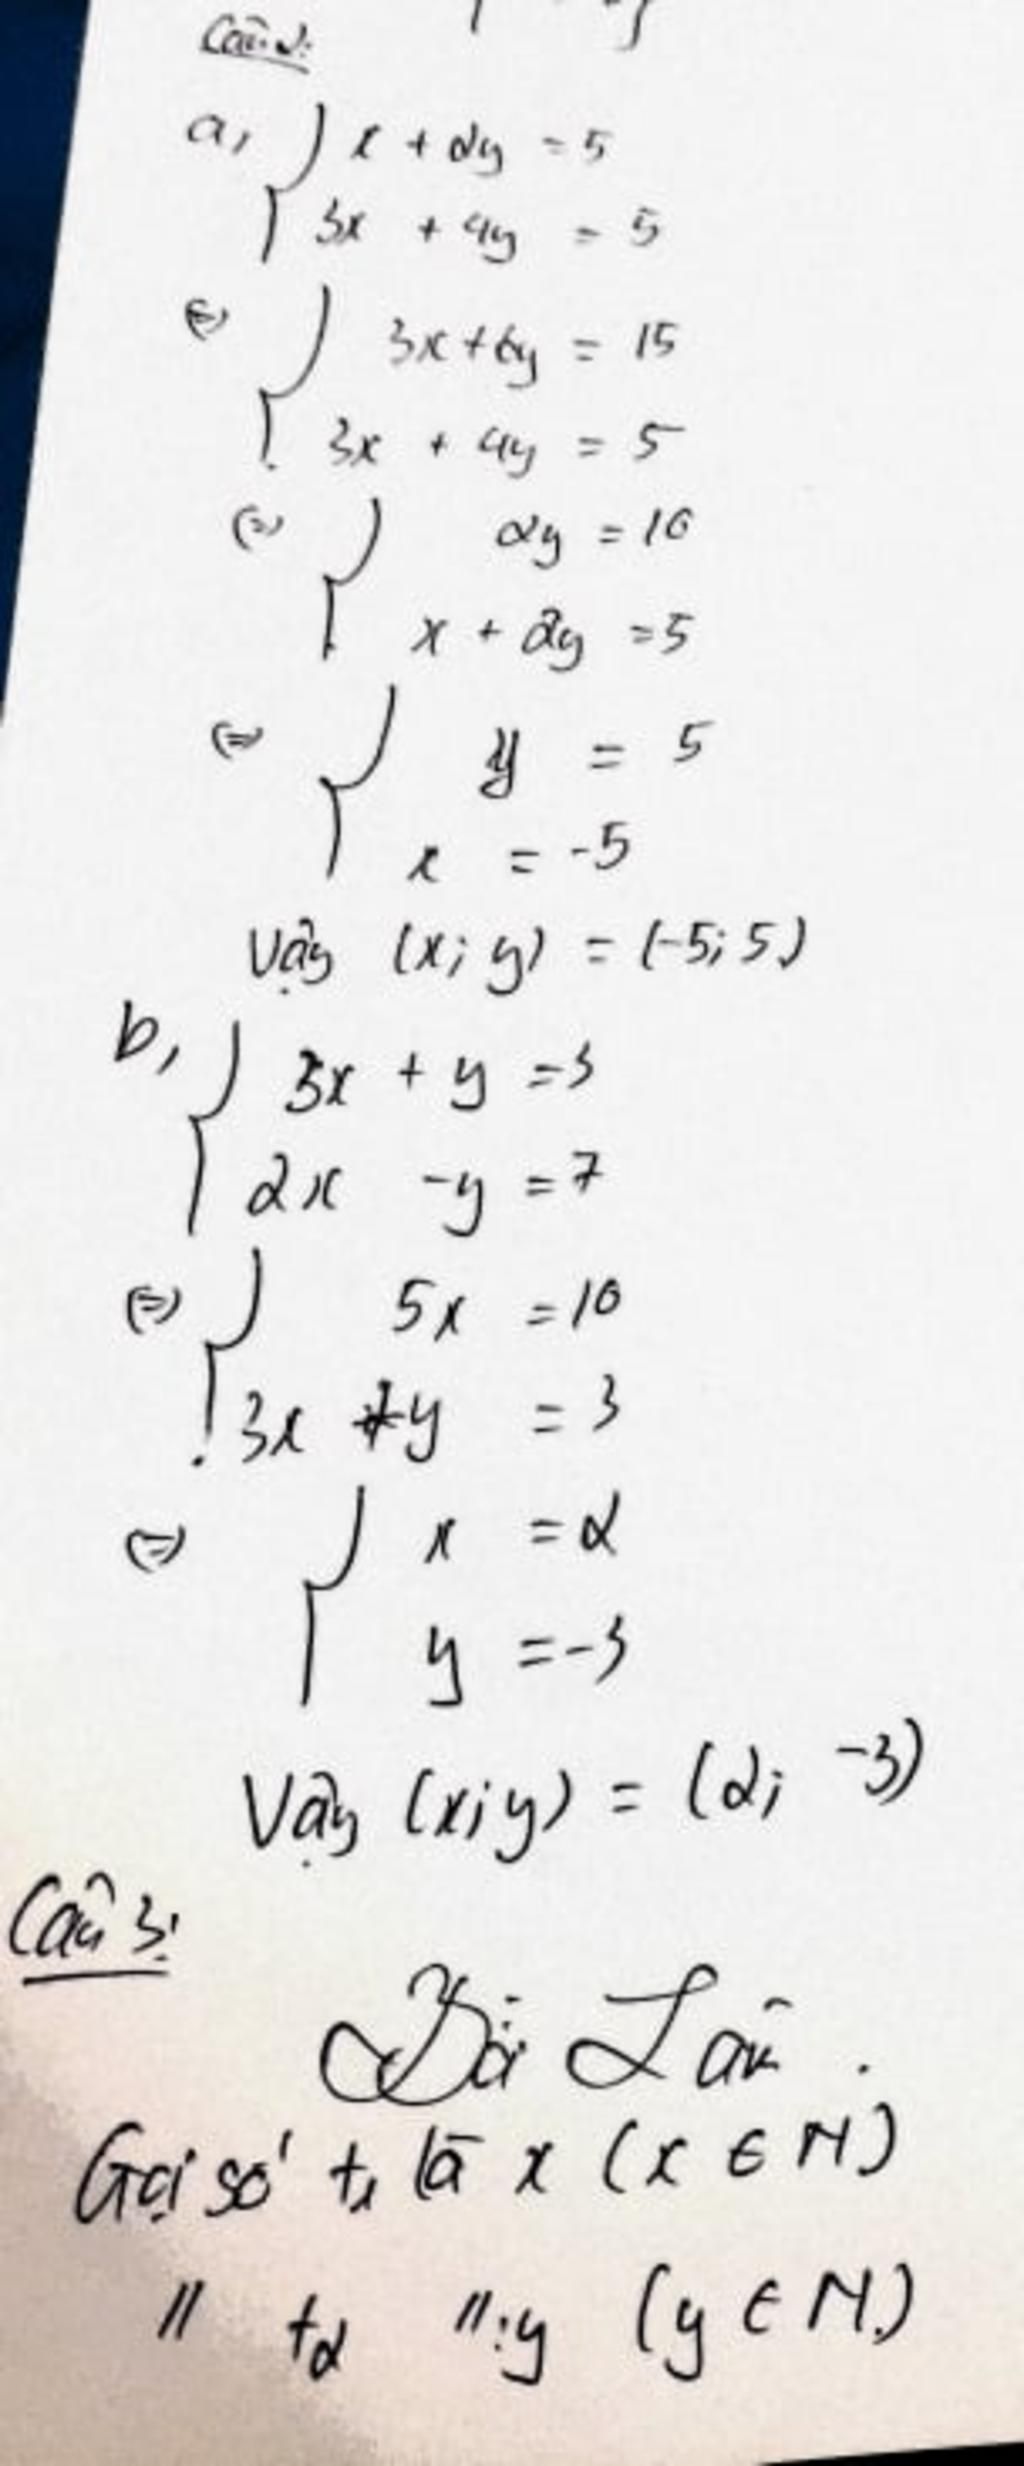 Câu 2:
a, x + 2y = 5
3x + 4y = 5
(=) 3x + 6y = 15
3x + 4y = 5
(=) 2y = 10
x + 2y = 5
(=) y = 5
x = -5
Vậy (x; y) = (-5; 5)
b, 3x + y = 3
2x - y = 7
(=) 5x = 10
3x + y = 3
(=) x = 2
y = -3
Vậy (x; y) = (2; -3)
Câu 3:
Bài Làm.
Gọi số t1 là x (x ∈ N)
" t2 ": y (y ∈ N)